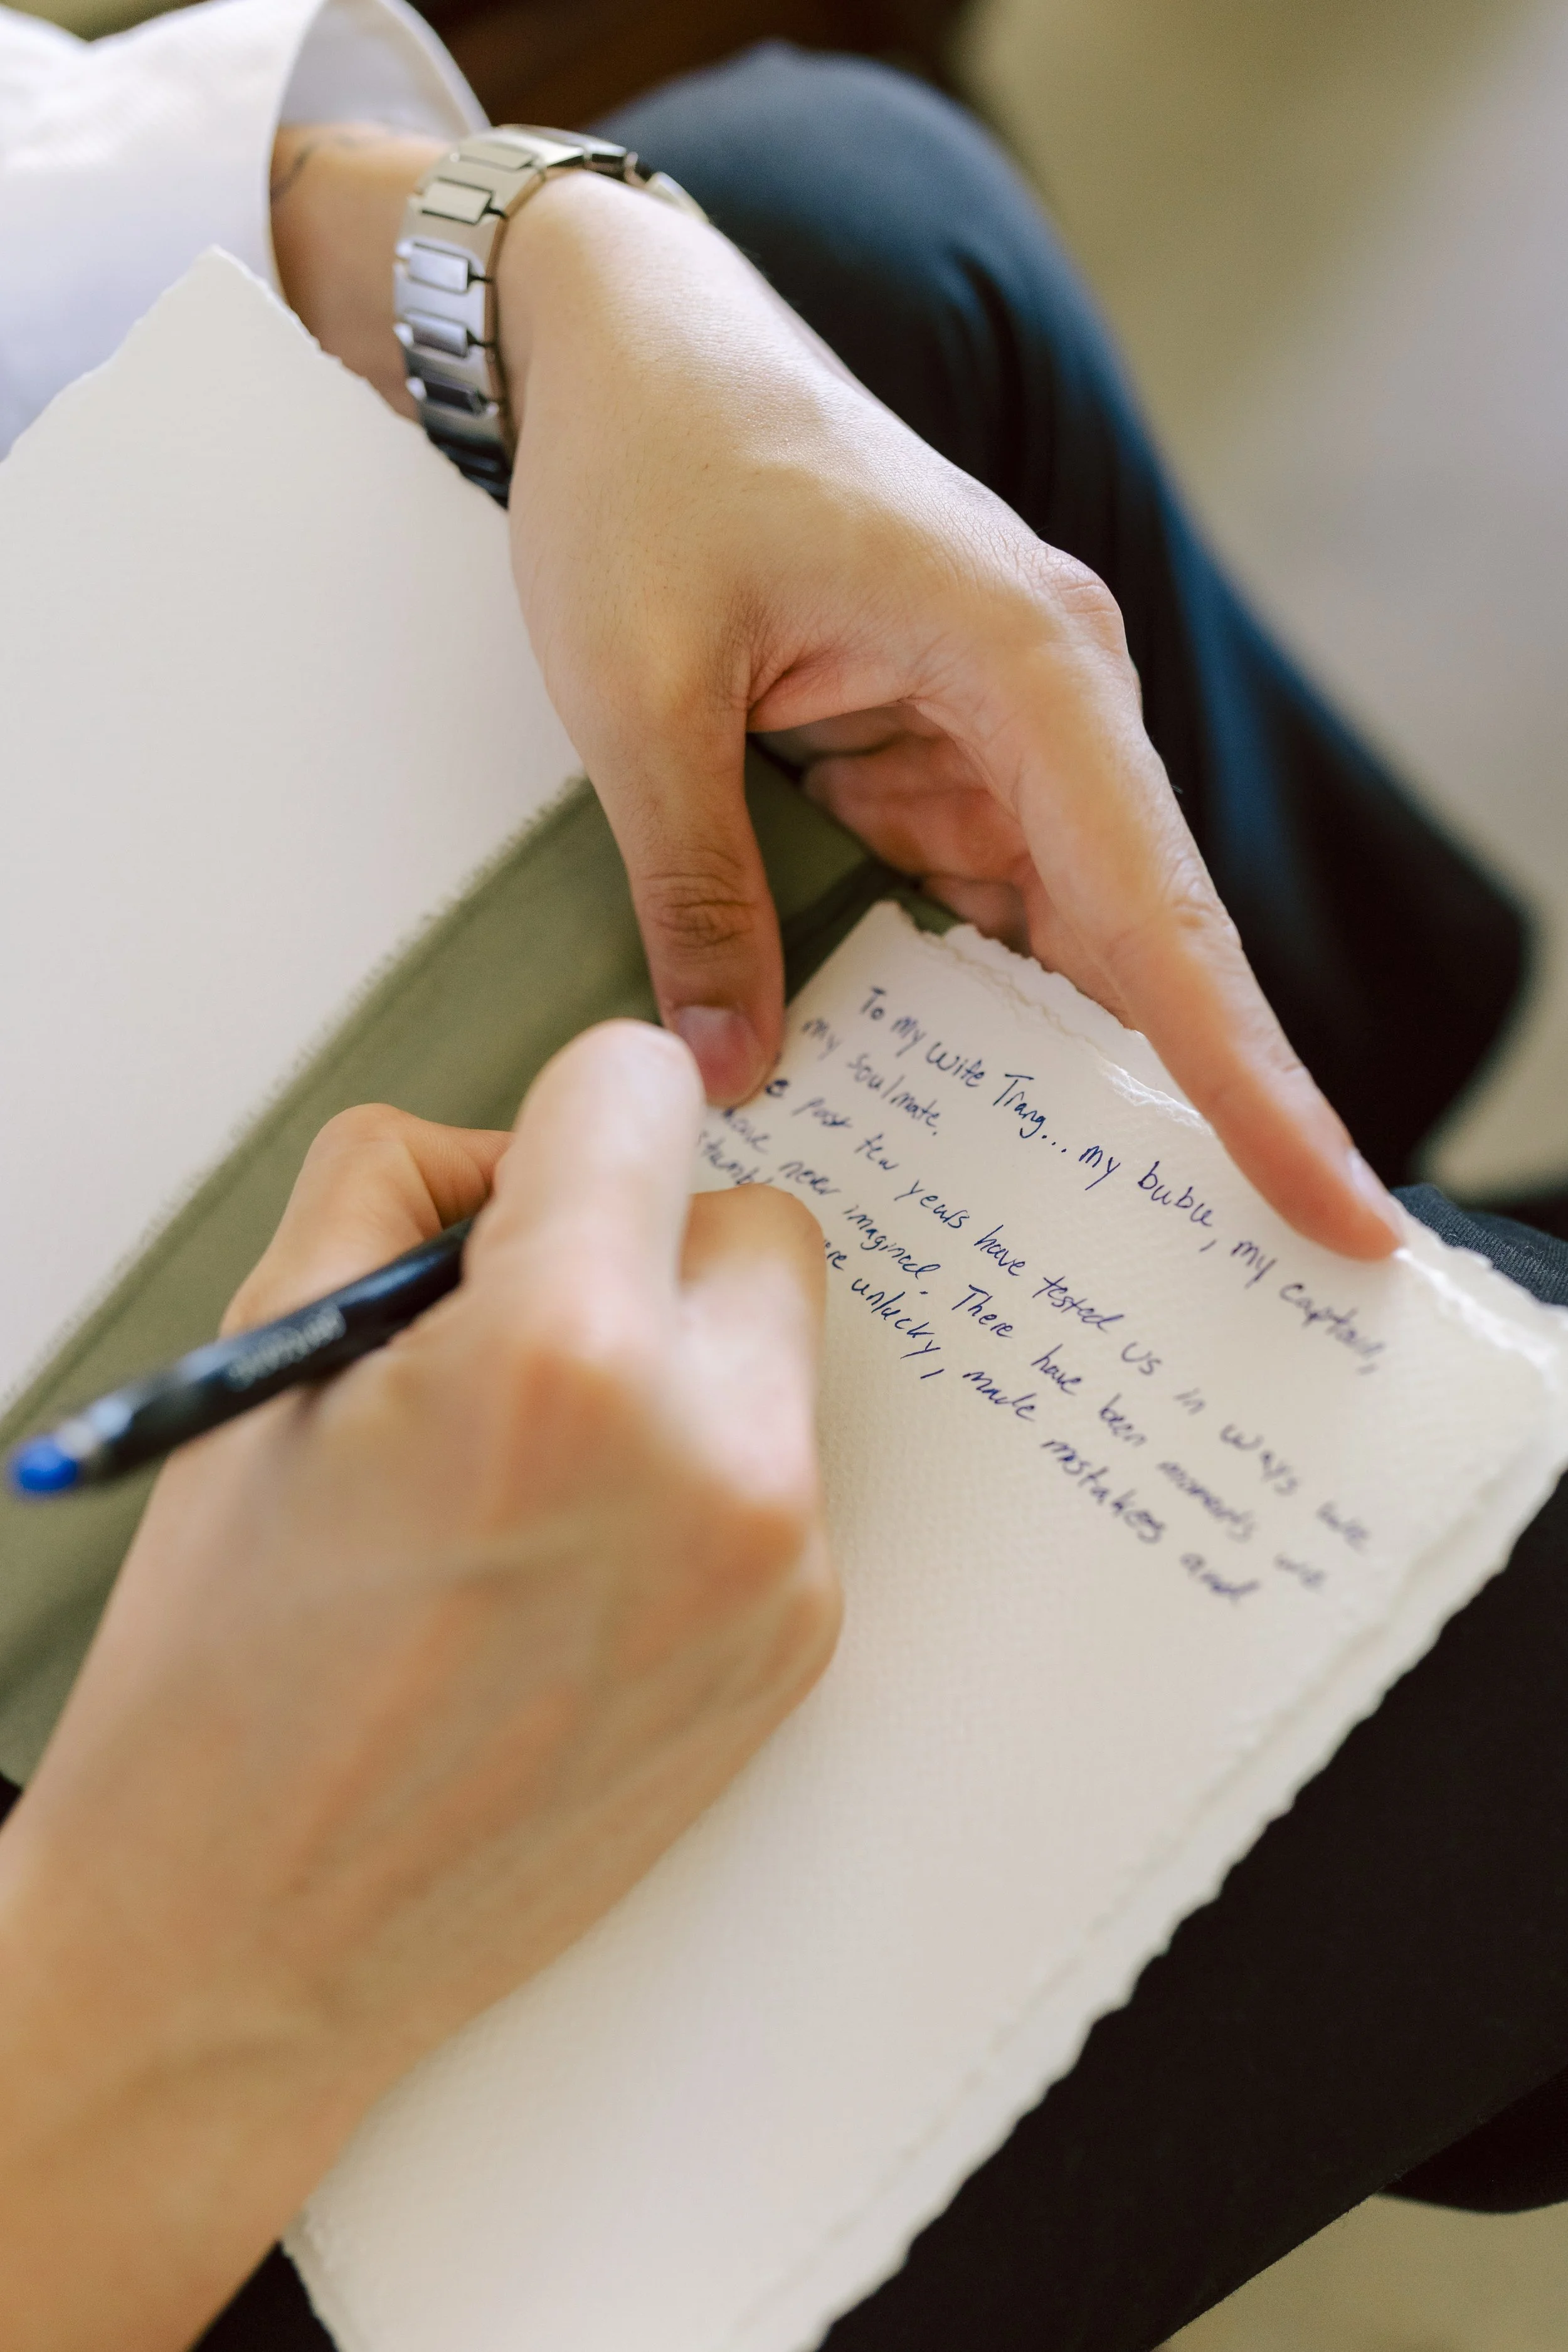 To my wife Trang... my bubu, my captain,
my soulmate.
past few years have tested us in ways we
have never imagined. There have been moments we
were unlucky, made mistakes and